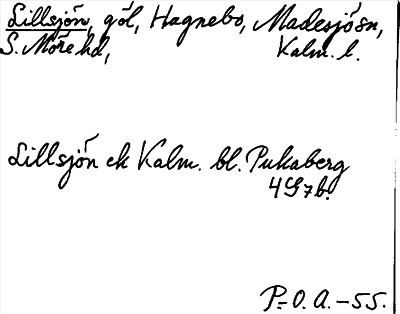 Lillsjön, göl, Hagnebo, Madesjösn,
S. Möre hd, Kalm. l.
Lillsjön ek Kalm. bl. Pukaberg
4G7b.
P.-O. A. -55.